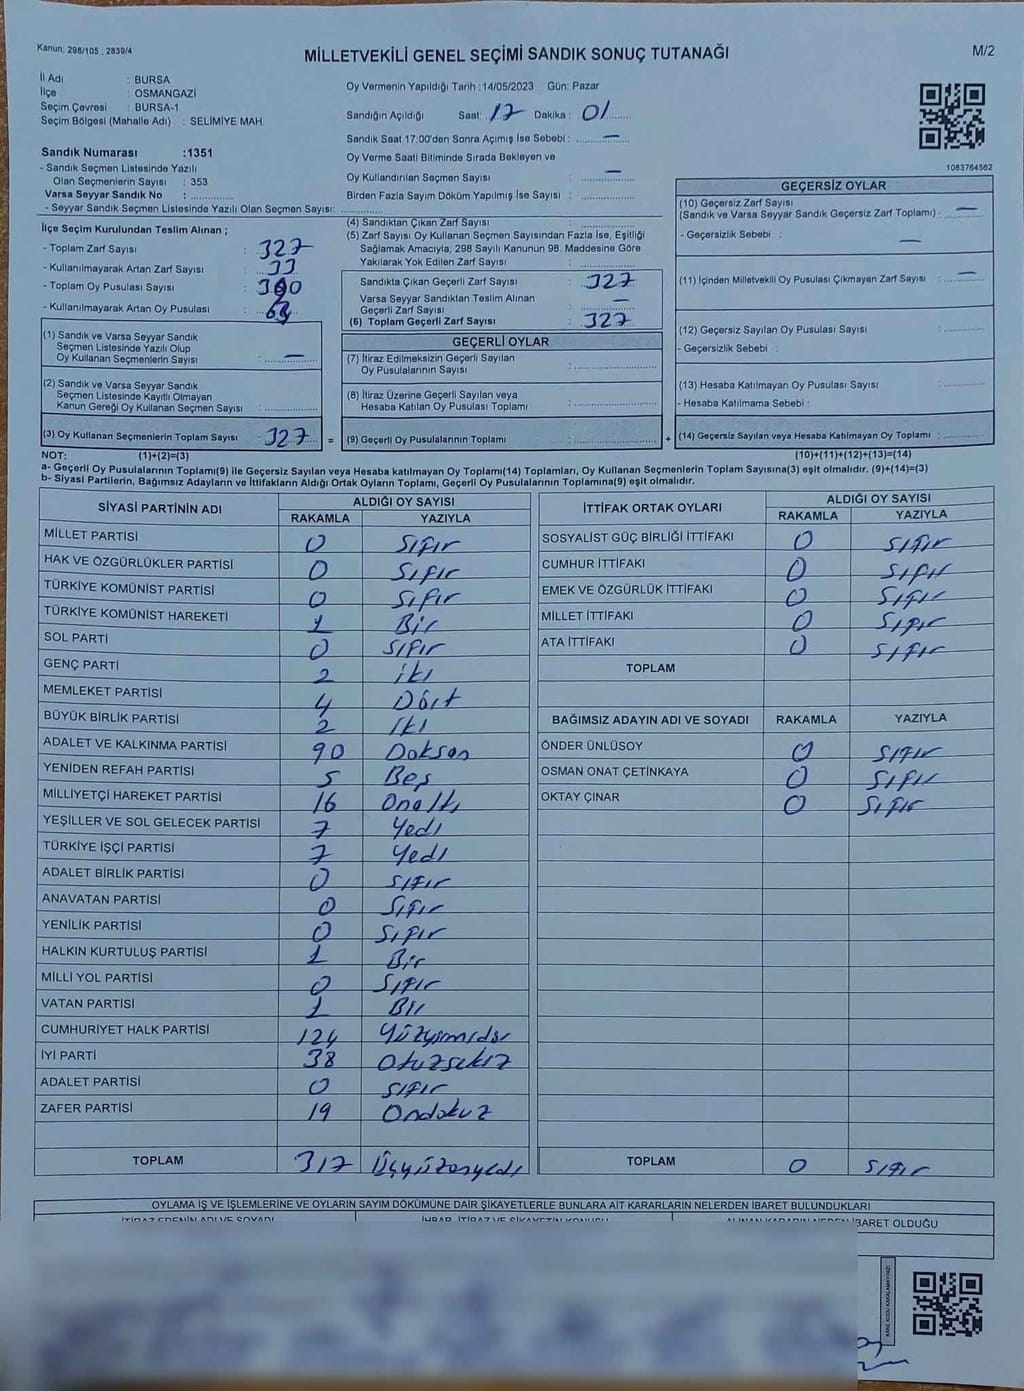 Kanun: 298/105 , 2839/4
MİLLETVEKİLİ GENEL SEÇİMİ SANDIK SONUÇ TUTANAĞI
M/2
İl Adı : BURSA
İlçe : OSMANGAZİ
Seçim Çevresi : BURSA-1
Seçim Bölgesi (Mahalle Adı) : SELİMİYE MAH.
Oy Vermenin Yapıldığı Tarih :14/05/2023 Gün: Pazar
Sandığın Açıldığı Saat: 17 Dakika : 01
Sandık Saat 17:00'den Sonra Açımış İse Sebebi : —
Oy Verme Saati Bitiminde Sırada Bekleyen ve
Oy Kullandırılan Seçmen Sayısı : —
Birden Fazla Sayım Döküm Yapılmış İse Sayısı :
Sandık Numarası :1351
- Sandık Seçmen Listesinde Yazılı
Olan Seçmenlerin Sayısı : 353
Varsa Seyyar Sandık No :
- Seyyar Sandık Seçmen Listesinde Yazılı Olan Seçmen Sayısı:
1083764562
İlçe Seçim Kurulundan Teslim Alınan ;
- Toplam Zarf Sayısı : 327
- Kullanılmayarak Artan Zarf Sayısı : 33
- Toplam Oy Pusulası Sayısı :
- Kullanılmayarak Artan Oy Pusulası :
(1) Sandık ve Varsa Seyyar Sandık
Seçmen Listesinde Yazılı Olup
Oy Kullanan Seçmenlerin Sayısı : —
(2) Sandık ve Varsa Seyyar Sandık
Seçmen Listesinde Kayıtlı Olmayan
Kanun Gereği Oy Kullanan Seçmen Sayısı :
(3) Oy Kullanan Seçmenlerin Toplam Sayısı : 327 =
(4) Sandıktan Çıkan Zarf Sayısı :
(5) Zarf Sayısı Oy Kullanan Seçmen Sayısından Fazla İse, Eşitliği
Sağlamak Amacıyla, 298 Sayılı Kanunun 98. Maddesine Göre
Yakılarak Yok Edilen Zarf Sayısı :
Sandıkta Çıkan Geçerli Zarf Sayısı : 327
Varsa Seyyar Sandıktan Teslim Alınan —
Geçerli Zarf Sayısı :
(6) Toplam Geçerli Zarf Sayısı : 327
GEÇERLİ OYLAR
(7) İtiraz Edilmeksizin Geçerli Sayılan
Oy Pusulalarının Sayısı :
(8) İtiraz Üzerine Geçerli Sayılan veya
Hesaba Katılan Oy Pusulası Toplamı :
(9) Geçerli Oy Pusulalarının Toplamı : +
GEÇERSİZ OYLAR
(10) Geçersiz Zarf Sayısı
(Sandık ve Varsa Seyyar Sandık Geçersiz Zarf Toplamı) : —
- Geçersizlik Sebebi : —
(11) İçinden Milletvekili Oy Pusulası Çıkmayan Zarf Sayısı : —
(12) Geçersiz Sayılan Oy Pusulası Sayısı :
- Geçersizlik Sebebi :
(13) Hesaba Katılmayan Oy Pusulası Sayısı :
- Hesaba Katılmama Sebebi :
(14) Geçersiz Sayılan veya Hesaba Katılmayan Oy Toplamı :
NOT: (1)+(2)=(3) (10)+(11)+(12)+(13)=(14)
a- Geçerli Oy Pusulalarının Toplamı(9) ile Geçersiz Sayılan veya Hesaba katılmayan Oy Toplamı(14) Toplamları, Oy Kullanan Seçmenlerin Toplam Sayısına(3) eşit olmalıdır. (9)+(14)=(3)
b- Siyasi Partilerin, Bağımsız Adayların ve İttifakların Aldığı Ortak Oyların Toplamı, Geçerli Oy Pusulalarının Toplamına(9) eşit olmalıdır.
SİYASİ PARTİNİN ADI ALDIĞI OY SAYISI
RAKAMLA YAZIYLA
MİLLET PARTİSİ 0 Sıfır
HAK VE ÖZGÜRLÜKLER PARTİSİ 0 Sıfır
TÜRKİYE KOMÜNİST PARTİSİ 0 Sıfır
TÜRKİYE KOMÜNİST HAREKETİ 1 Bir
SOL PARTİ 0 Sıfır
GENÇ PARTİ 2 iki
MEMLEKET PARTİSİ 4 Dört
BÜYÜK BİRLİK PARTİSİ 2 İki
ADALET VE KALKINMA PARTİSİ 90 Doksan
YENİDEN REFAH PARTİSİ 5 Beş
MİLLİYETÇİ HAREKET PARTİSİ 16 Onaltı
YEŞİLLER VE SOL GELECEK PARTİSİ 7 Yedi
TÜRKİYE İŞÇİ PARTİSİ 7 Yedi
ADALET BİRLİK PARTİSİ 0 Sıfır
ANAVATAN PARTİSİ 0 Sıfır
YENİLİK PARTİSİ 0 Sıfır
HALKIN KURTULUŞ PARTİSİ 1 Bir
MİLLİ YOL PARTİSİ 0 Sıfır
VATAN PARTİSİ 1 Bir
CUMHURİYET HALK PARTİSİ 124
İYİ PARTİ 38 Otuzsekiz
ADALET PARTİSİ 0 Sıfır
ZAFER PARTİSİ 19 Ondokuz
TOPLAM 317 Üçyüzonyedi
İTTİFAK ORTAK OYLARI ALDIĞI OY SAYISI
RAKAMLA YAZIYLA
SOSYALİST GÜÇ BİRLİĞİ İTTİFAKI 0 Sıfır
CUMHUR İTTİFAKI 0 Sıfır
EMEK VE ÖZGÜRLÜK İTTİFAKI 0 Sıfır
MİLLET İTTİFAKI 0 Sıfır
ATA İTTİFAKI 0 Sıfır
TOPLAM
BAĞIMSIZ ADAYIN ADI VE SOYADI RAKAMLA YAZIYLA
ÖNDER ÜNLÜSOY 0 Sıfır
OSMAN ONAT ÇETİNKAYA 0 Sıfır
OKTAY ÇINAR 0 Sıfır
TOPLAM 0 Sıfır
OYLAMA İŞ VE İŞLEMLERİNE VE OYLARIN SAYIM DÖKÜMÜNE DAİR ŞİKAYETLERLE BUNLARA AİT KARARLARIN NELERDEN İBARET BULUNDUKLARI
İTİRAZ EDENİN ADI VE SOYADI İHBAR, İTİRAZ VE ŞİKAYETİN KONUSU ALINAN KARARIN NEDEN İBARET OLDUĞU
KARE KODU KARALAMAYINIZ!